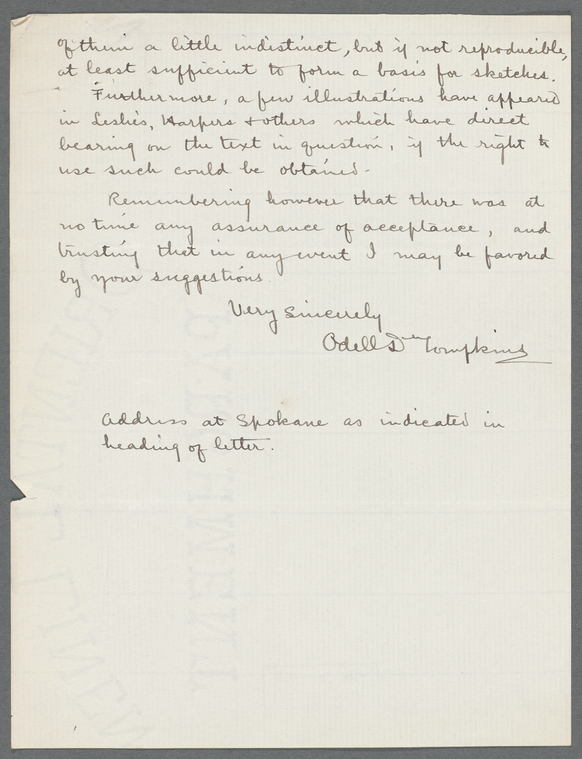 of them a little indistinct, but if not reproducible,
at least sufficient to form a basis for sketches.
Furthermore, a few illustrations have appeared
in Leslie's, Harpers & others which have direct
bearing on the text in question, if the right to
use such could be obtained.
Remembering however that there was at
no time any assurance of acceptance, and
trusting that in any event I may be favored
by your suggestions.
Very sincerely
Odell Tompkins
Address at Spokane as indicated in
heading of letter.